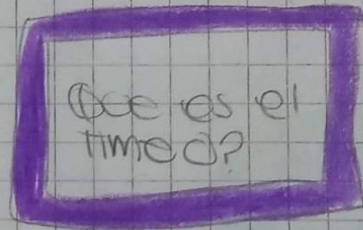 Que es el
timed?